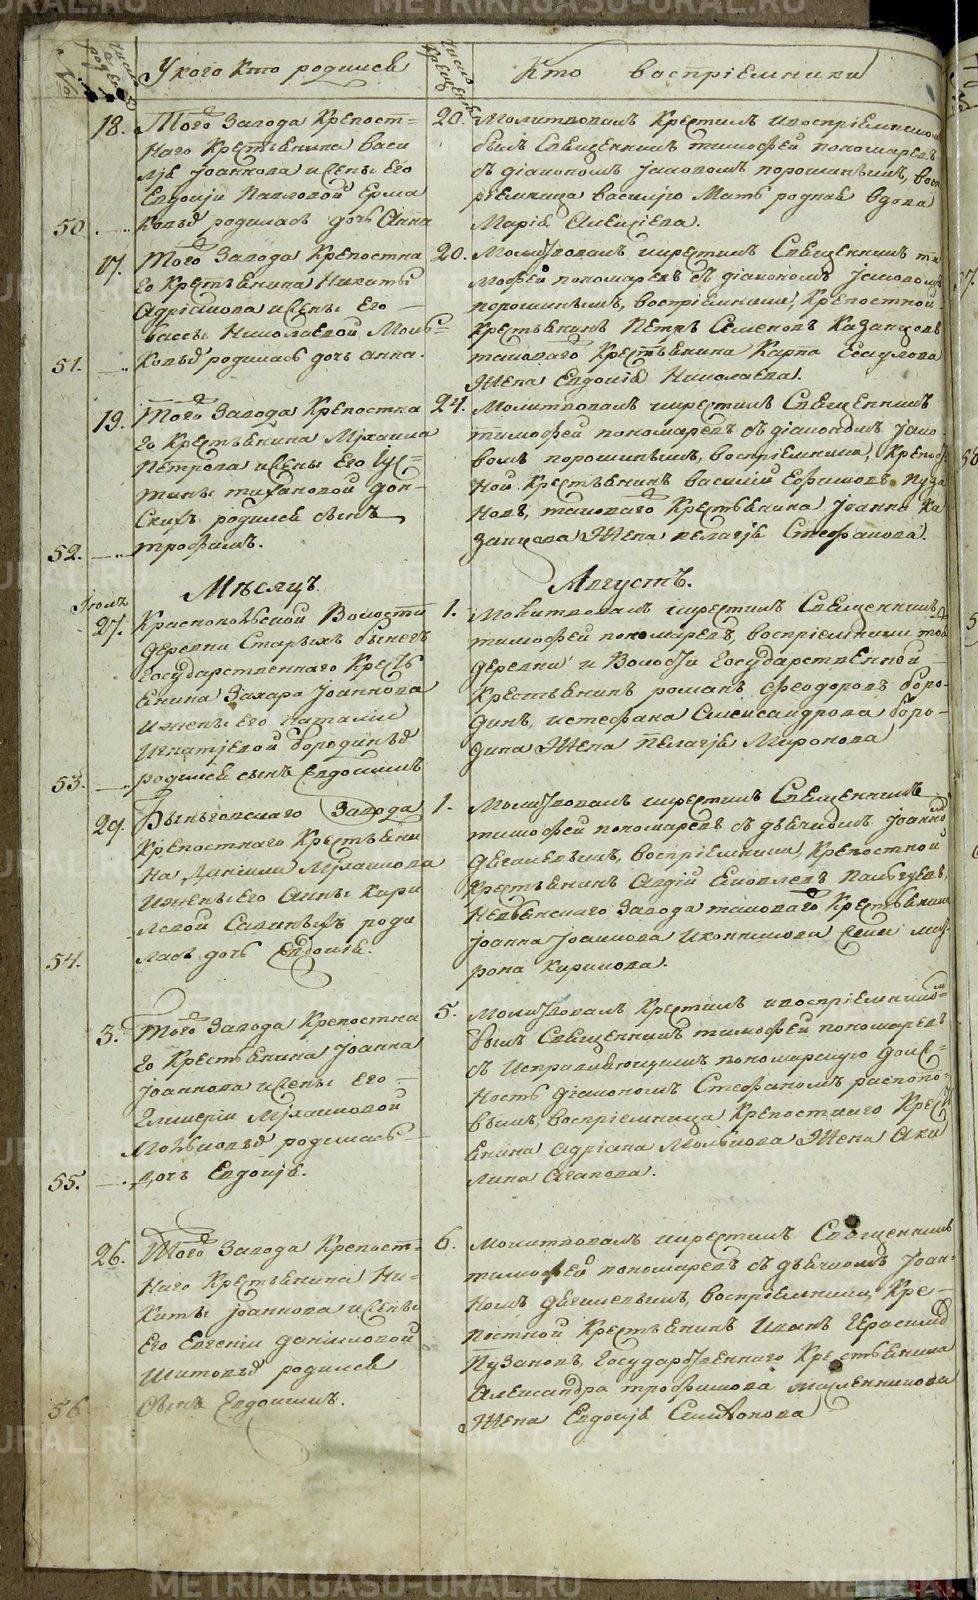 У кого кто родился
Кто воспріемники
18. Того Завода Крепост-
наго Крестьянина Васи
лія Іоаннова и жены его
Евдокіи Павловой Ерма
50. ковых родилась дочь Анна
20. Молитвовалъ Крестилъ и воспріемником
былъ Священникъ Тимофей Пономаревъ
съ діакономъ Іаковомъ Порошинымъ, восп
ріемница Василію Мать родная вдова
Марія Алексіева.
17. Того Завода Крепостна
го Крестьянина Никиты
Адріанова и жены его
Вассы Николаевой
51. родилась дочь Анна.
20. Молитвовалъ и крестилъ Священникъ Ти
мофей Пономаревъ съ діакономъ Іаковомъ
Порошинымъ, воспріемники, Крепостной
Крестьянинъ Петръ Семеновъ Казанцовъ
таковаго Крестьянина Карпа
Жена Евдокія Николаева.
19. Того Завода Крепостна
го Крестьянина Михаила
Петрова и жены его Іус-
тины Тихановой Дон-
скихъ родился сынъ
52. Трофимъ.
24. Молитвовалъ и крестилъ Священникъ
Тимофей Пономаревъ съ діакономъ Іако
вомъ Порошинымъ, воспріемники, Крепост
ной Крестьянинъ Василій Ефимовъ Пуза
новъ, таковаго Крестьянина Іоанна Ка
занцова Жена Пелагія Стефанова.
Мѣсяцъ
Августъ.
Іюля
27. Краснопольской Волости
деревни Старыхъ
Государственнаго Кресть
янина Захара Іоаннова
и жены его Наталіи
Игнатіевой Бородиных
53. родился сынъ Евдокимъ
1. Молитвовалъ и крестилъ Священникъ
Тимофей Пономаревъ, воспріемники той
деревни и Волости Государственной
Крестьянинъ Романъ Феодоровъ Боро-
динъ, и Стефана Александрова Боро-
дина Жена Пелагія Миронова
29. Быньговскаго Завода
Крепостнаго Крестьяни
на Даніила Михаилова
и жены его Анны Кири
ловой родил
54. лась дочь Евдокія.
1. Молитвовалъ и крестилъ Священникъ
Тимофей Пономаревъ съ дьячкомъ Іоанном
воспріемники, Крепостной
Крестьянинъ Авдій Яковлевъ
Невьянскаго Завода таковаго Крестьянина
Іоанна Іоаннова Иконникова
Кирилова.
3. Того Завода Крепостна
го Крестьянина Іоанна
Іоаннова и жены его
Гликеріи Михаиловой
родилась
55. дочь Евдокія.
5. Молитвовалъ Крестилъ и воспріемником
былъ Священникъ Тимофей Пономаревъ
съ исправляющимъ пономарскую долж-
ность діакономъ Стефаномъ Распопо-
вымъ, воспріемница Крепостнаго Крест
янина Адріана Жена Аки
лина Агапова.
26. Того Завода Крепост-
наго Крестьянина Ни-
киты Іоаннова и жены
его Евгеніи Даніиловой
Шитовых родился
56 сынъ Евдокимъ.
6. Молитвовалъ и крестилъ Священникъ
Тимофей Пономаревъ съ дьячкомъ Іоан-
номъ воспріемники Кре-
постной Крестьянинъ Иванъ Герасимов
Пузановъ, Государственнаго Крестьянина
Александра Трофимова Масленникова
Жена Евдокія
METRIKI.GASO-URAL.RU